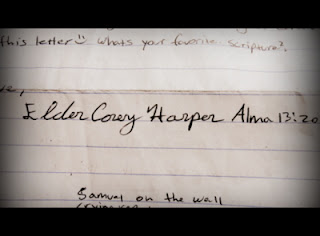 this letter whats your favorite scripture?
Elder Corey Harper Alma 13:20
Samuel on the wall